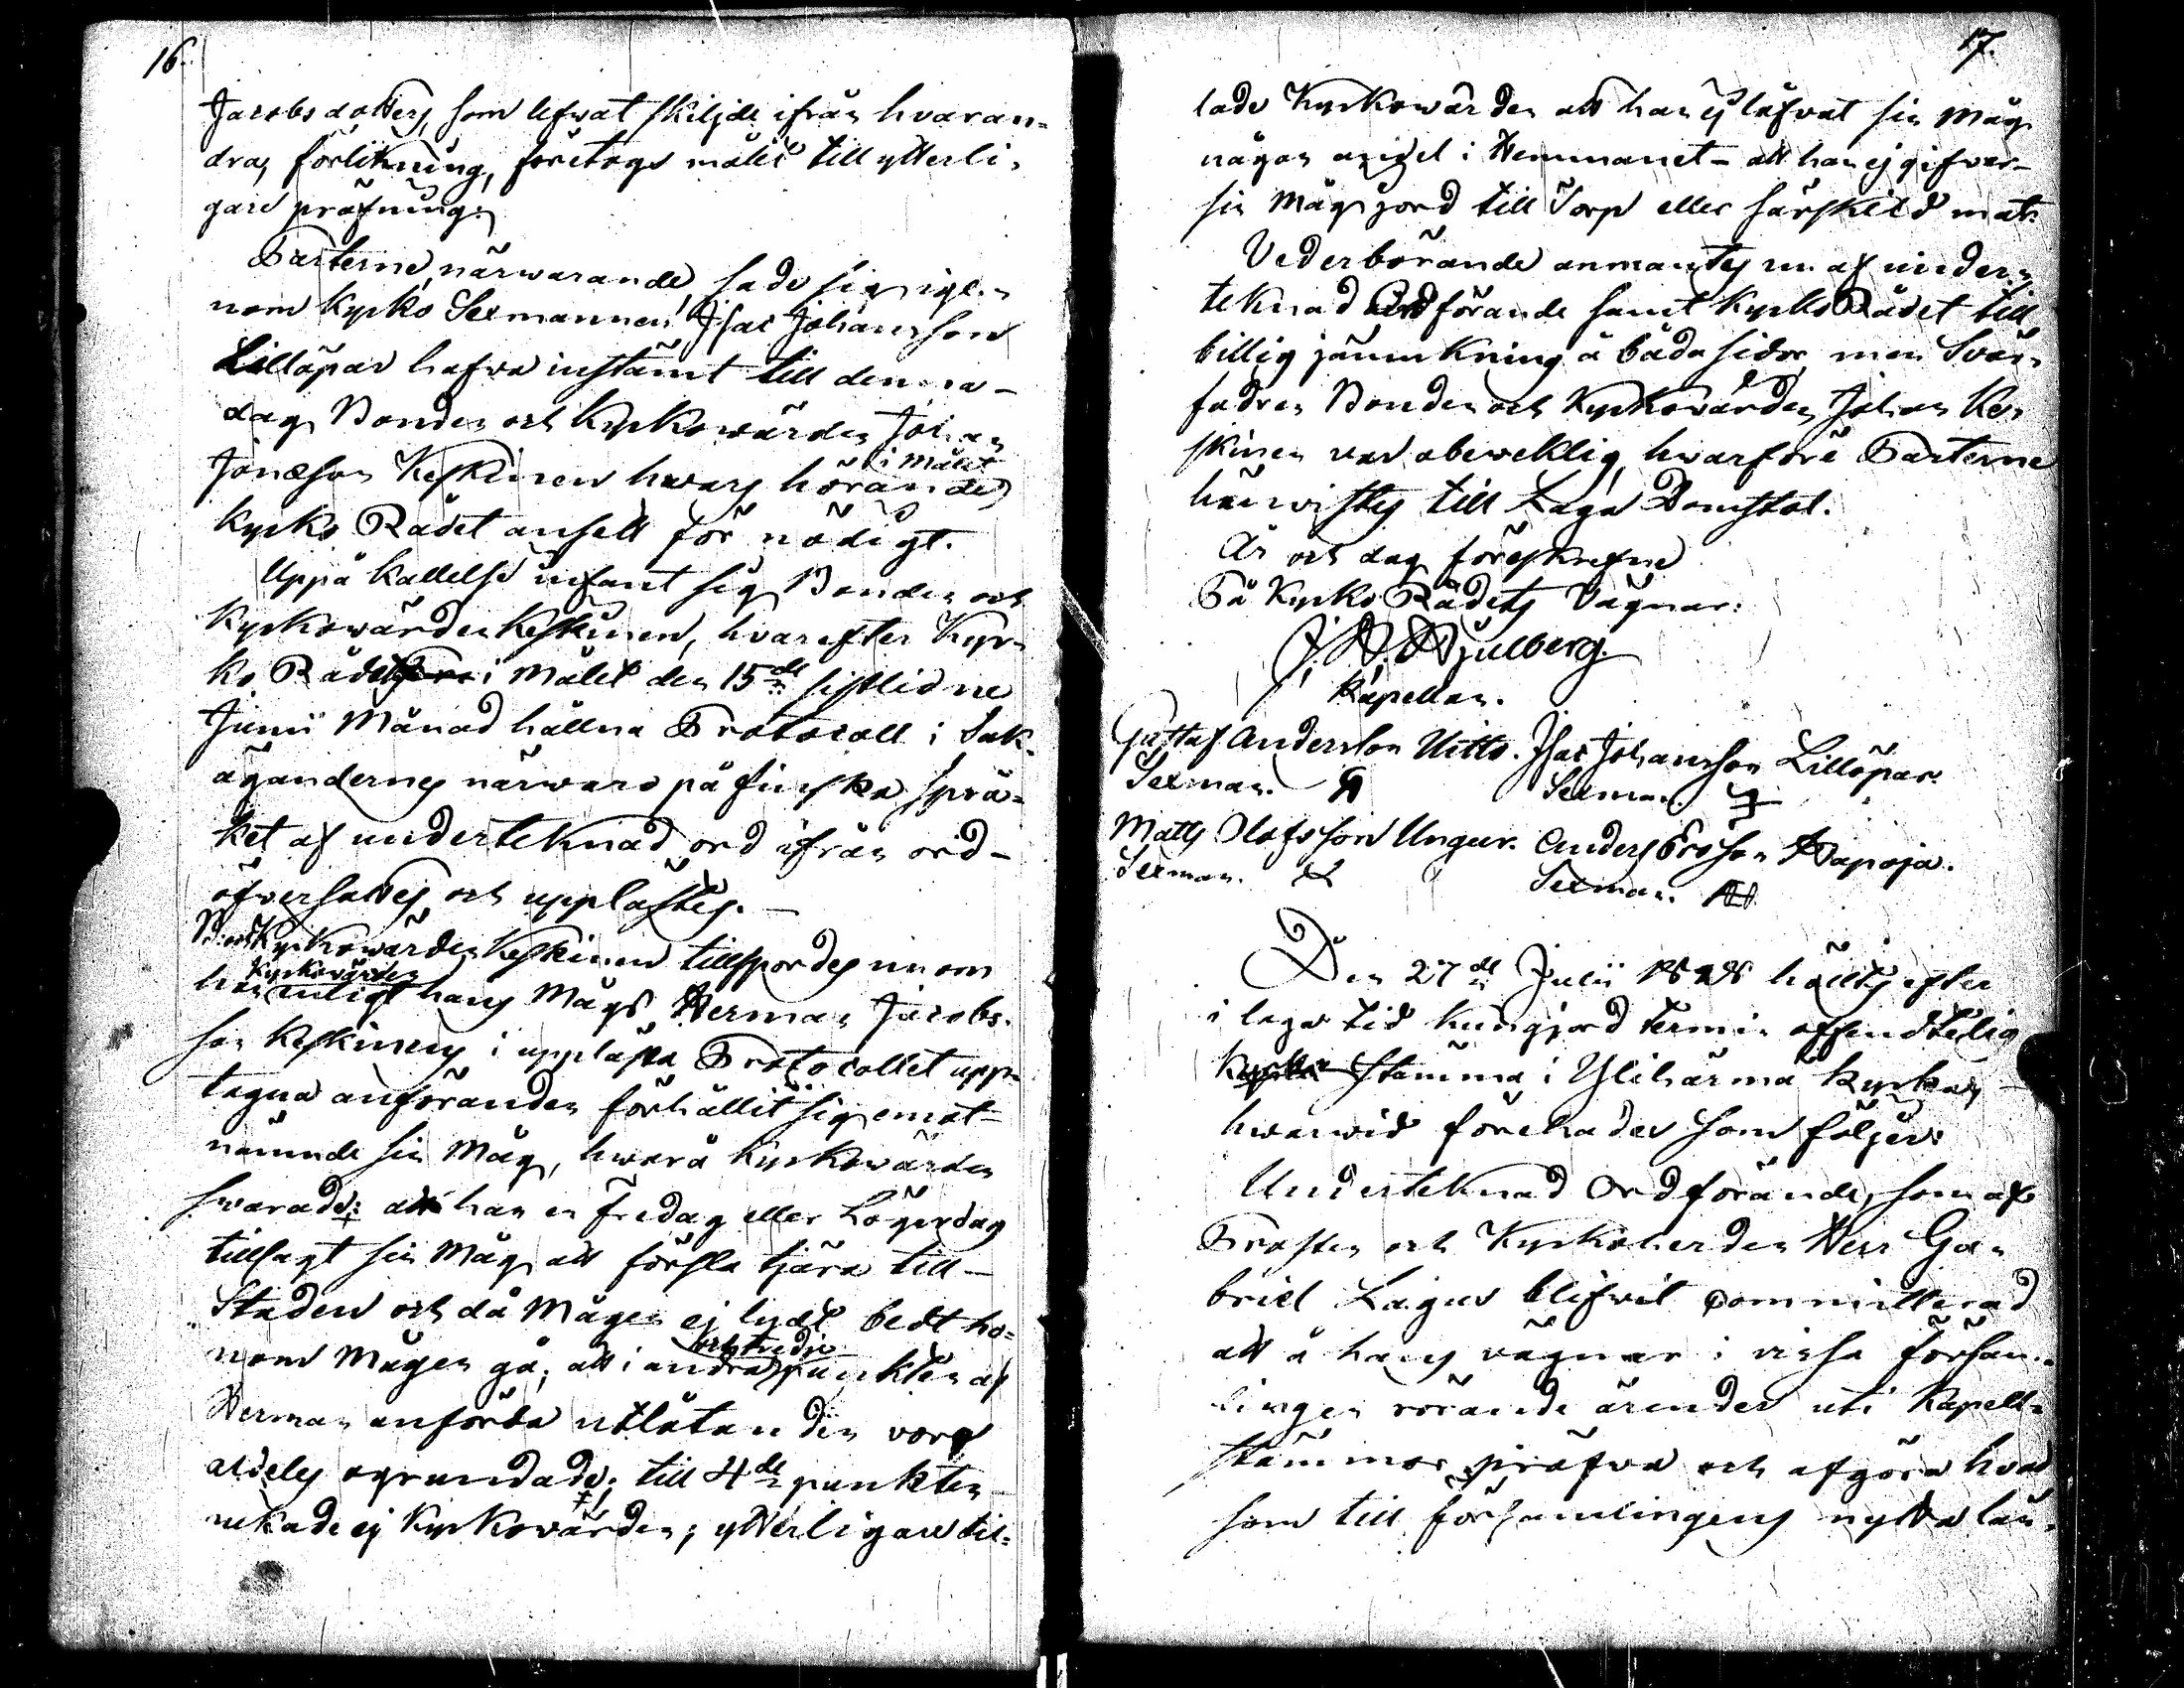 16.
Jacobsdotters, som lefwat skiljde ifrån hvaran-
dra, förlikning, företogs målet till ytterli-
gare pröfning.
Parterne närwarande, sade sig ige-
nom Kyrko Sexmannen Isac Johansson
Lillöpar hafwa instämt till denna
dag Bonden och Kyrkowärden Johan
Jonæson Keskinen hwars hörande
i målet
Kyrko Rådet ansett för nödigt.
Uppå kallelse infant sig Bonden och
Kyrkowärden Keskinen, hvarefter Kyr-
ko Rådets i målet den 15de sistlidne
Junii Månad hållna Protocoll i Sak-
ägandernes närwaro på finska språ-
ket af undertecknad ord ifrån ord
öfversattes och upplästes.
Kyrkowärden Keskinen tillspordes nu om
Kyrkowärden
han enligt hans Mågs Herman Jacobs-
son Keskinens i upplästa Protocollet upp-
tagna anföranden förhållit sig emot
nämnde sin Måg, hwarå Kyrkowärden
swarade: att han en Fredag eller Lögerdag
tillsagt sin Måg att forsla tjära till
Staden och då Mågen ej lydt bedt ho-
nom Mågen gå; att i andra punkten af
och tredje
Herman anförda utlåtanden voro
aldeles ogrundade; till 4de punkten
nekade ej Kyrkowärden; ytterligare til-
17.
lade Kyrkowärden att han ej låfvat sin Måg
någon andel i Hemmanet - att han ej gifver
sin Måg jord till Torp eller särskild mat.
Vederbörande anmantes nu af under-
teknad Ordförande samt Kyrko Rådet till
billig jämkning å båda sidor, men Svär-
fadren Bonden och Kyrkowärden Johan Ke-
skinen var obeweklig hwarföre Parterne
hänwistes till Laga Domstol.
År och dag föreskrefne
På Kyrko Rådets Vägnar:
Kapellan.
Gustaf Andersson Uitto. Isac Johansson Lillöpar.
Sexman. Sexman.
Matts Olofsson Ungur. Anders Ersson Haapoja.
Sexman. Sexman.
Den 27de Julii 1828 hölts efter
i laga tid kungjord termin offendtelig
stämma i Ylihärmä Kyrka,
hwarvid förehades som följer:
Underteknad Ordförande, som af
Prosten och Kyrkoherden Herr Ga-
briel Lagus blifvit committerad
att å hans vägnar i vissa försam-
lingen rörande ärender uti Kapell-
stämmor pröfva och afgöra hvad
som till församlingens nytta län-